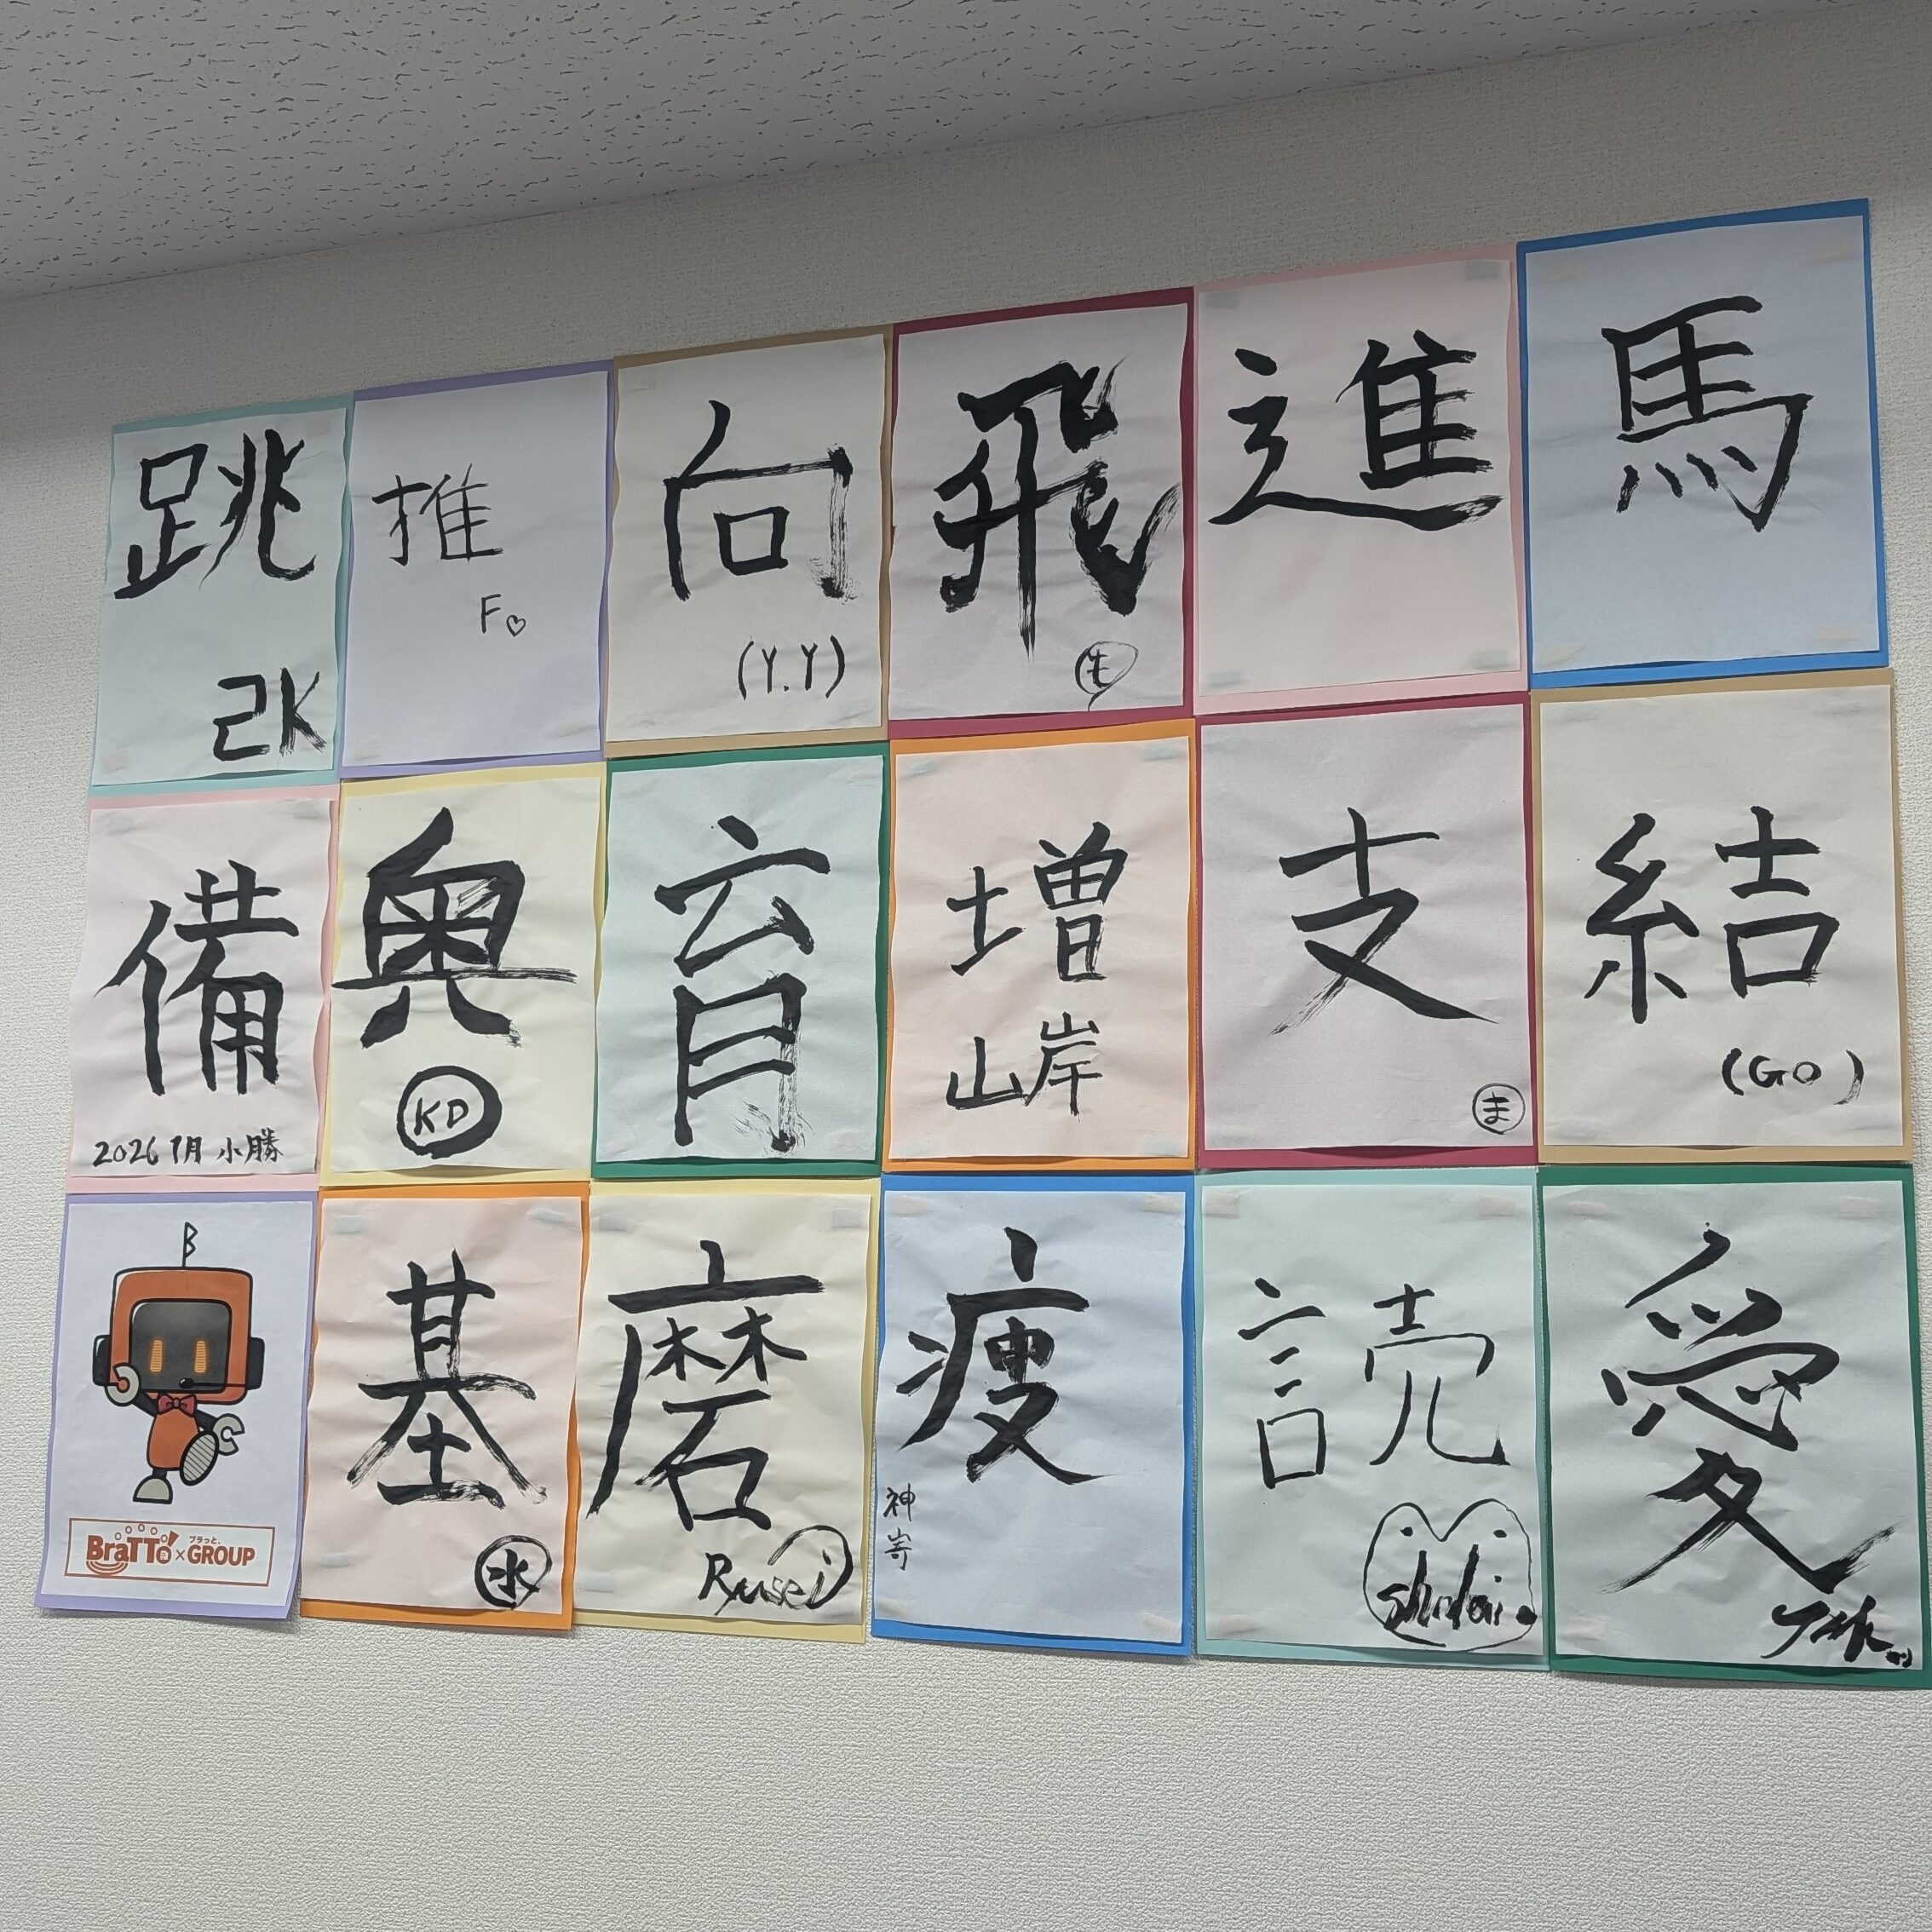 跳
2K
推
F♡
向
(Y.Y)
飛
進
馬
備
2026 1月 小勝
奥
KD
育
増
山岸
支
ま
結
(GO)
B
BraTTo!
ブラっと、
×GROUP
基
水
磨
Ryusei
疲
神嵜
読
愛